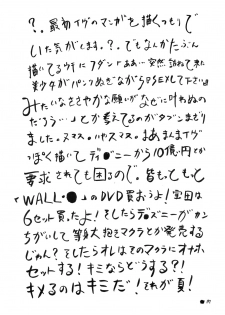 ?、最初イヴのマンガを描くつもりで
いた気がします。?、でもなんかたぶん
描いてるウチにフダン「ああ…突然、訪ねて来た
美少女がパンツぬぎながらSEXして下さい」
みたいなささやかな願いがなぜに叶わぬの
だろう…」とか考えてるのがタブンまざり
ました。スマス。ハヤスマス。まあまんまイヴ
っぽく描いてディ●ニーから10億円とか
要求されても困るので。皆もってもって
「WALL・●」のDVD買おうよ!宝田は
6セット買ったよ!そしたらディ●ズニーがカン
ちがいして等身大抱きマクラとか発売する
じゃん?そしたらオレはそのマクラにオナホ
セットする!キミならどうする?!
キメるのはキミだ!それが夏!